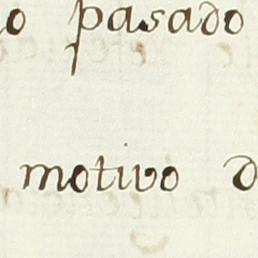 o pasado
motivo d